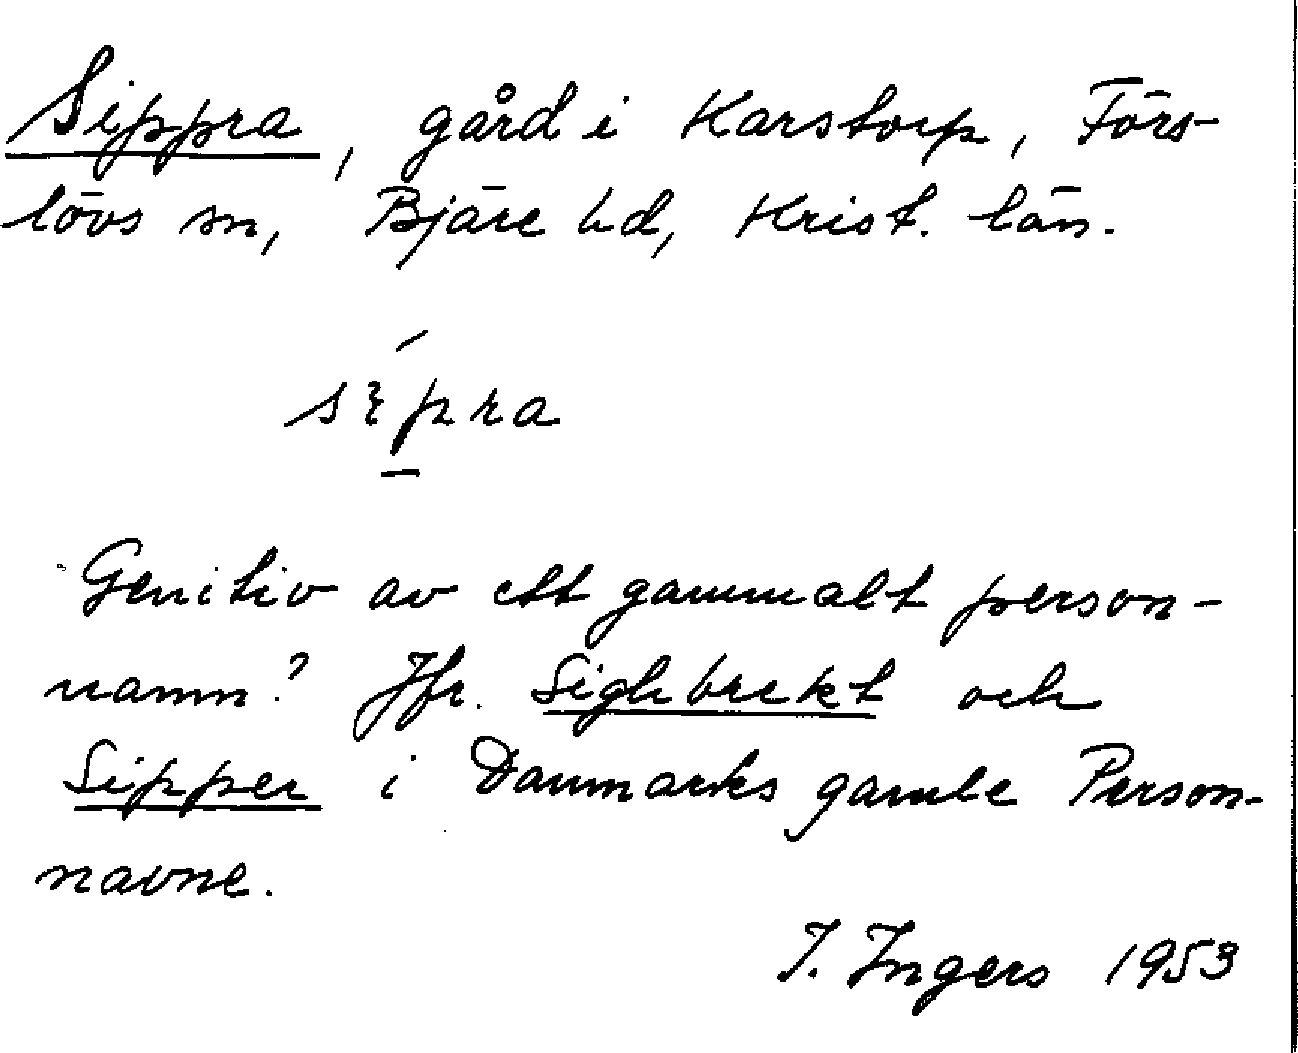 Sippra, gård i Karstorp, Förs-
lövs sn, Bjäre hd, Krist. län.
Genitiv av ett gammalt person-
namn? Jfr. Sighbrekt och
Sipper i Danmarks gamle Person-
navne.
I. Ingers 1953